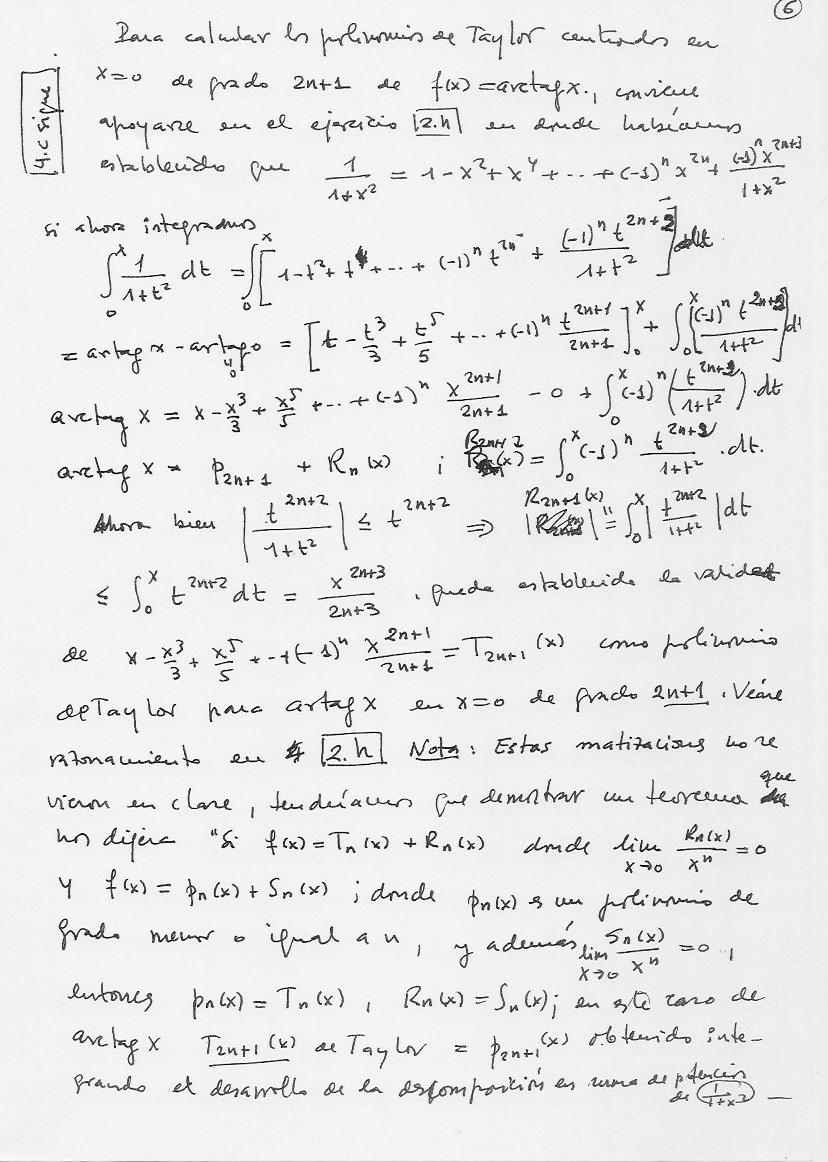 6
4.c sigue.
Para calcular los polinomios de Taylor centrados en
x=0 de grado 2n+1 de f(x)=arctag x., conviene
apoyarse en el ejercicio 2.h en donde habíamos
establecido que 1/(1+x²) = 1-x²+x⁴+...+(-1)ⁿx²ⁿ+ (-1)ⁿx²ⁿ⁺³/(1+x²)
si ahora integramos
∫₀ˣ 1/(1+t²) dt = ∫₀ˣ [1-t²+t⁴+...+(-1)ⁿt²ⁿ + (-1)ⁿt²ⁿ⁺²/(1+t²)] dt
= artag x - artag 0 = [t - t³/3 + t⁵/5 +...+(-1)ⁿ t²ⁿ⁺¹/(2n+1)]₀ˣ + ∫₀ˣ [(-1)ⁿ t²ⁿ⁺²/(1+t²)] dt
0
arctag x = x - x³/3 + x⁵/5 +...+(-1)ⁿ x²ⁿ⁺¹/(2n+1) - 0 + ∫₀ˣ (-1)ⁿ (t²ⁿ⁺²/(1+t²)) . dt
arctag x = P₂ₙ₊₁ + Rₙ(x) ; R₂ₙ₊₂(x) = ∫₀ˣ (-1)ⁿ t²ⁿ⁺²/(1+t²) . dt.
Ahora bien |t²ⁿ⁺²/(1+t²)| ≤ t²ⁿ⁺² ⇒ |R₂ₙ₊₁(x)| = ∫₀ˣ |t²ⁿ⁺²/(1+t²)| dt
≤ ∫₀ˣ t²ⁿ⁺² dt = x²ⁿ⁺³/(2n+3) . queda establecida la validez
de x - x³/3 + x⁵/5 +...+(-1)ⁿ x²ⁿ⁺¹/(2n+1) = T₂ₙ₊₁(x) como polinomio
de Taylor para artag x en x=0 de grado 2n+1. Véase
razonamiento en 2.h Nota: Estas matizaciones no se
vieron en clase, tendríamos que demostrar un teorema que
nos dijera "Si f(x) = Tₙ(x) + Rₙ(x) donde lim x→0 Rₙ(x)/xⁿ = 0
y f(x) = pₙ(x) + Sₙ(x) ; donde pₙ(x) es un polinomio de
grado menor o igual a n, y además lim x→0 Sₙ(x)/xⁿ = 0,
entonces pₙ(x) = Tₙ(x), Rₙ(x) = Sₙ(x); en este caso de
arctag x T₂ₙ₊₁(x) de Taylor = p₂ₙ₊₁(x) obtenido inte-
grando el desarrollo de la descomposición en suma de potencias
de 1/(1+x²) —